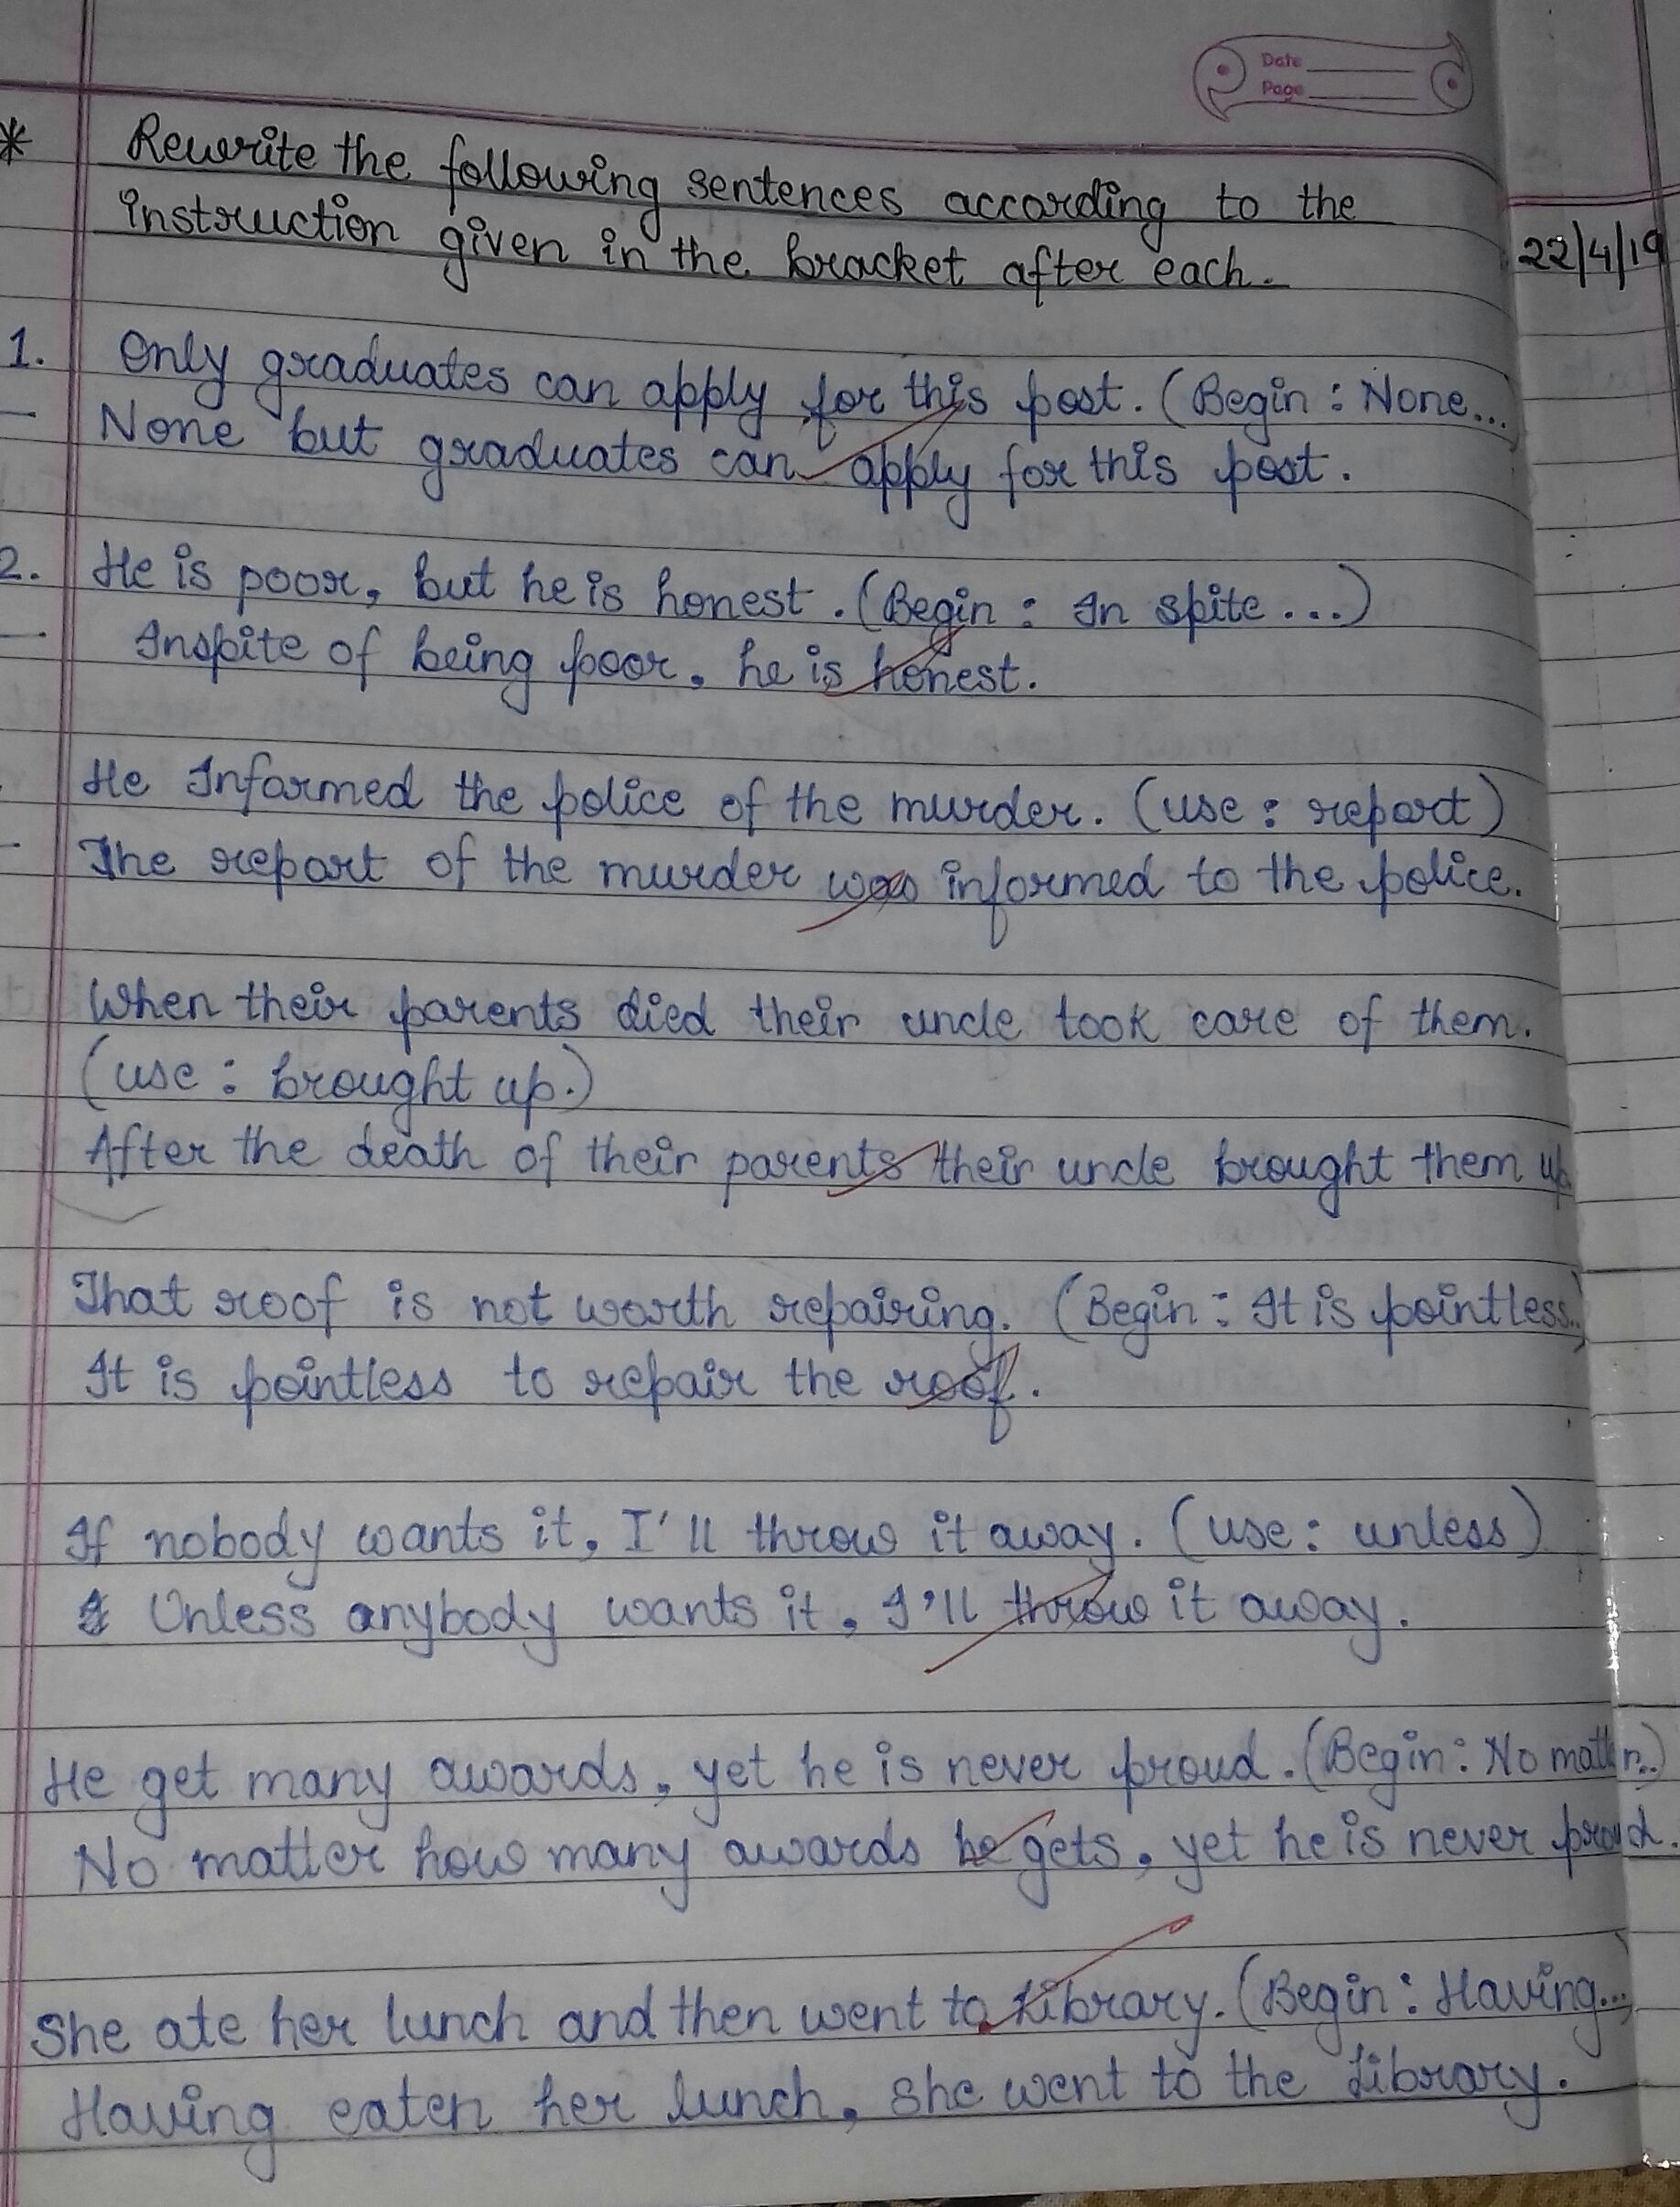 Date
Page
* Rewrite the following sentences according to the
instruction given in the bracket after each.
22/4/19
1. Only graduates can apply for this post. (Begin : None...
- None but graduates can apply for this post.
2. He is poor, but he is honest. (Begin : In spite ...)
- Inspite of being poor, he is honest.
He Informed the police of the murder. (use : report)
- The report of the murder was informed to the police.
When their parents died their uncle took care of them.
(use : brought up.)
After the death of their parents their uncle brought them up.
That roof is not worth repairing. (Begin : It is pointless..)
It is pointless to repair the roof.
If nobody wants it, I'll throw it away. (use : unless)
Unless anybody wants it, I'll throw it away.
He get many awards, yet he is never proud. (Begin : No matter...)
No matter how many awards he gets, yet he is never proud.
She ate her lunch and then went to Library. (Begin : Having...)
Having eaten her lunch, she went to the Library.